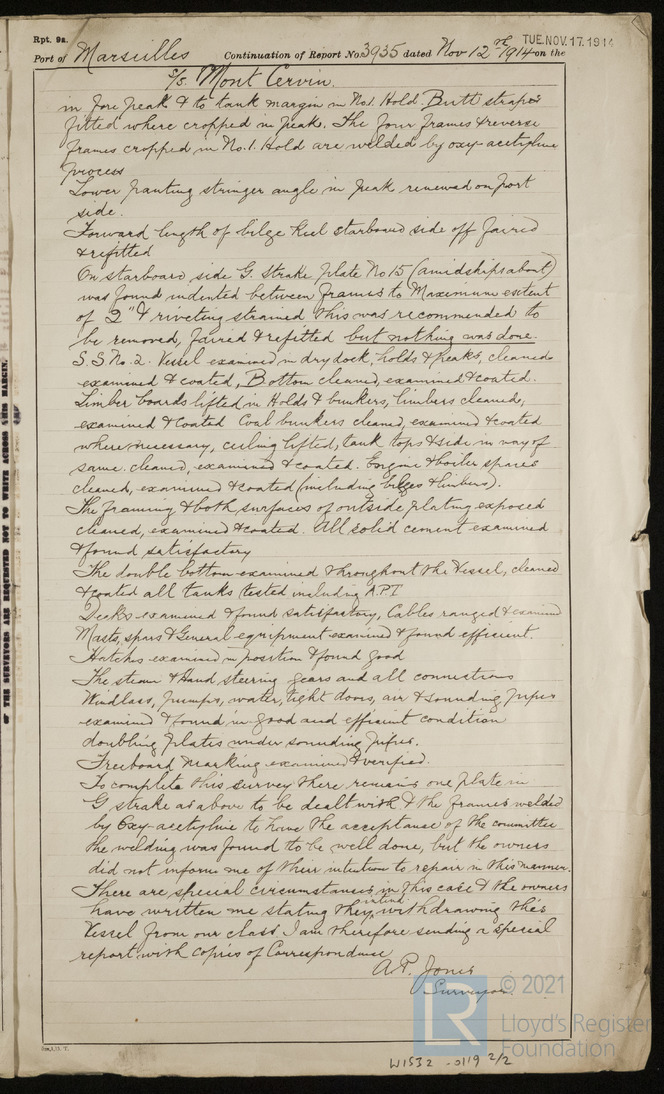 Rpt. 9a.
TUE. NOV. 17. 1914
Port of Marseilles Continuation of Report No. 3935 dated Nov 12th 1914 on the
S/S. Mont Cervin.
in fore peak & to tank margin in No.1. Hold. Butt straps
fitted where cropped in peak. The four frames & reverse
frames cropped in No.1. Hold are welded by oxy-acetyline
process
Lower panting stringer angle in peak renewed on port
side.
Forward length of bilge keel starboard side off faired
& refitted
On starboard side G. Strake plate No 15 (amidships about)
was found indented between frames to Maximum extent
of 2" & riveting strained this was recommended to
be removed, faired & refitted but nothing was done.
S.S No. 2. Vessel examined in drydock, holds & peaks, cleaned
examined & coated, Bottom cleaned, examined & coated.
Limber boards lifted in Holds & bunkers, limbers cleaned,
examined & coated Coal bunkers cleaned, examined & coated
where necessary, ceiling lifted, tank tops & side in way of
same cleaned, examined & coated. Engine & boiler spaces
cleaned, examined & coated (including bilges & limbers).
The framing & both surfaces of outside plating exposed
cleaned, examined & coated. All solid cement examined
& found satisfactory
The double bottom examined throughout the Vessel, cleaned
& coated all tanks tested including APT
Decks examined & found satisfactory, Cables ranged & examined
Masts, spars & General equipment examined & found efficient.
Hatches examined in position & found good
The steam & Hand steering gears and all connections
Windlass, pumps, water, tight doors, air & sounding pipes
examined & found in good and efficient condition
doubling plates under sounding pipes.
Freeboard marking examined & verified.
To complete this survey there remains one plate in
G strake as above to be dealt with & the frames welded
by Oxy-acetyline to have the acceptance of the committee
the welding was found to be well done, but the owners
did not inform me of their intention to repair in this manner.
There are special circumstances in this case & the owners
have written me stating they intend withdrawing this
Vessel from our class I am therefore sending a special
report with copies of Correspondence
A.P. Jones
Surveyor.
OF THE SURVEYORS ARE REQUESTED NOT TO WRITE ACROSS THIS MARGIN.
LR
© 2021
Lloyd's Register
Foundation
W1532 - 0119 2/2